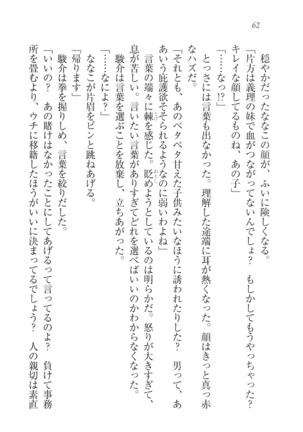 62
穏やかだったななこの顔が、ふいに険しくなる。
「片方は義理の妹で血がつながってないんでしょ？　もしかしてもうやっちゃった？
キレイな顔してるものね、あの子」
「……なっ!?」
とっさには言葉も出なかった。理解した途端に耳が熱くなる。顔はきっと真っ赤
なハズだ。
「それとも、あのベタベタ甘えた子供みたいなほうに誘われたりした？　男って、ま
あいう庇護欲そそられるのに弱いわよね」
言葉の端々に棘を感じた。貶めようとしているのは明らかだ。怒りが大きすぎて、
息が苦しい。言いたい言葉がありすぎてどれを選べばいいのかわからなくなった。
駿介は言葉を選ぶことを放棄し、立ちあがった。
「……なによ？」
ななこが片眉をピンと跳ねあげる。
駿介は拳を握りしめ、言葉を絞りだした。
「帰ります」
「いいの？　あの賭けはなかったことにしてあげるって言ってるのよ？　負けて事務
所を畳むより、ウチに移籍したほうがいいに決まってるでしょう？　人の親切は素直